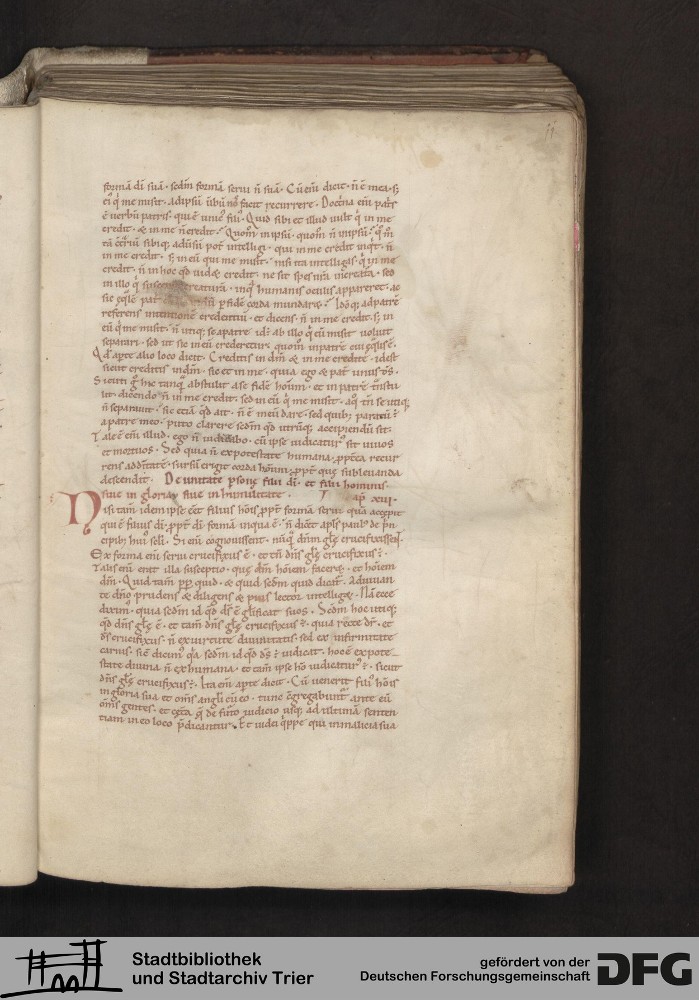 11
formā dī suā · sedm̄ formā serui ñ suā · Cū eīm dicit · ñ ē mea · s;
ei᷒ q̇ me misit · ad ipsū unū nos facit recurrere · Doctⁱna eīm patⁱs
ē uerbū patris · qui ē unic᷒ fili᷒ · Quid sibi et illud uult q̇ in me
credit · & in me ñ credit · Quom̄ in ipsū · quom̄ ñ in ipsū · q̇m̄
tā ꝯtⁱriū sibiq; aduersū pot̄ intelligi · qui in me credit inqⁱt · ñ
in me credit · s; in eū qui me misit · nisi ita intelligas · q̇ in me
credit · ñ in hoc qd̄ uidet credit · ne sit spes nr̄a in creatura · sed
in illo q̇ suscepit creaturā · in q̇ humanis oculis appareret · ac
sic ad patrē ꝑ fidē corda mundaret · Ideoq; ad patrē
referens intentionē credentiū · et dicens · ñ in me credit · s; in
eū q̇ me misit · ñ utiq; se a patre id; ab illo q̇ eū misit uoluit
separari · sed ut sic in eū crederetur quom̄ in patrē cui eqⁱlis ē ·
Qd̄ aꝑte alio loco dicit · Creditis in dm̄ & in me credite · idest
sicut creditis in dm̄ · sic et in me · quia ego & pat̄ unus ds̄ ·
Sicuti g̊ hic tanq̄ abstulit a se fidē hom̄ · et in patrē tⁱnstu
lit · dicendo ñ in me credit · sed in eū q̇ me misit · a q̊ tm̄ se utiq;
ñ separauit · sic etiā qd̄ ait · ñ ē meū dare · sed quib; paratū ē
a patre meo · puto clarere sedm̄ qd̄ utrūq; accipiendū sit ·
Tale ē eīm illud · ego ñ iudicabo · cū ipse iudicatur᷒ sit uiuos
et mortuos · Sed quia ñ ex potestate humana · ꝓpt̄ea recur
rens ad deitatē · sursū erigit corda hom̄ · ꝓpt̄ que subleuanda
descendit · De unitate psone filii dī · et filii hominis ·
siue in gloria · siue in humilitate · Cap̄ xvi ·
Nisi tam̄ idem ipse eēt filius hōis ꝓpt̄ formā serui quā accepit
qui ē filius dī · ꝓpt̄ dī formā in qua ē · ñ diceret apl̄s paul᷒ de pⁱn
cipib; hui᷒ scl̄i · Si eīm cognouissent · nūq̄ dn̄m gl̄e crucifixissent ·
Ex forma eīm serui crucifixus ē · et tn̄ dn̄s gl̄e crucifixus ē ·
Talis eīm erat illa susceptio · que dm̄ hōiem faceret · et hōiem
dm̄ · Quid tam̄ ꝓpt̄ quid · & quid sedm̄ quid dicat̄ · adiuuan
te dn̄o prudens & diligens & pius lector intelligat · Nā ecce
dixim᷒ · quia sedm̄ id qd̄ ds̄ ē glⁱficat suos · Sedm̄ hoc utiq;
qd̄ dn̄s gl̄e ē · et tam̄ dn̄s gl̄e crucifixus ē · quia recte dr̄ · et
ds̄ crucifixus · ñ ex uirtute diuinitatis · sed ex infirmitate
carnis · sic̄ dicim᷒ qⁱa sedm̄ id qd̄ ds̄ ē iudicat · hoc ē ex pote
state diuina ñ ex humana · et tam̄ ipse hō iudicatur᷒ ē · sicut
dn̄s gl̄e crucifixus ē · Ita eīm aꝑte dicit · Cū uenerit fili᷒ hōis
in gloria sua et oms̄ angl̄i cū eo · tunc ꝯgregabunt̄ ante eū
oms̄ gentes · et cet̄a q̄ de futo iudicio usq; ad ultimā senten
tiam in eo loco p̄dicantur · Et iudei q̇ppe qui in malicia sua
Stadtbibliothek
und Stadtarchiv Trier
gefördert von der
Deutschen Forschungsgemeinschaft
DFG